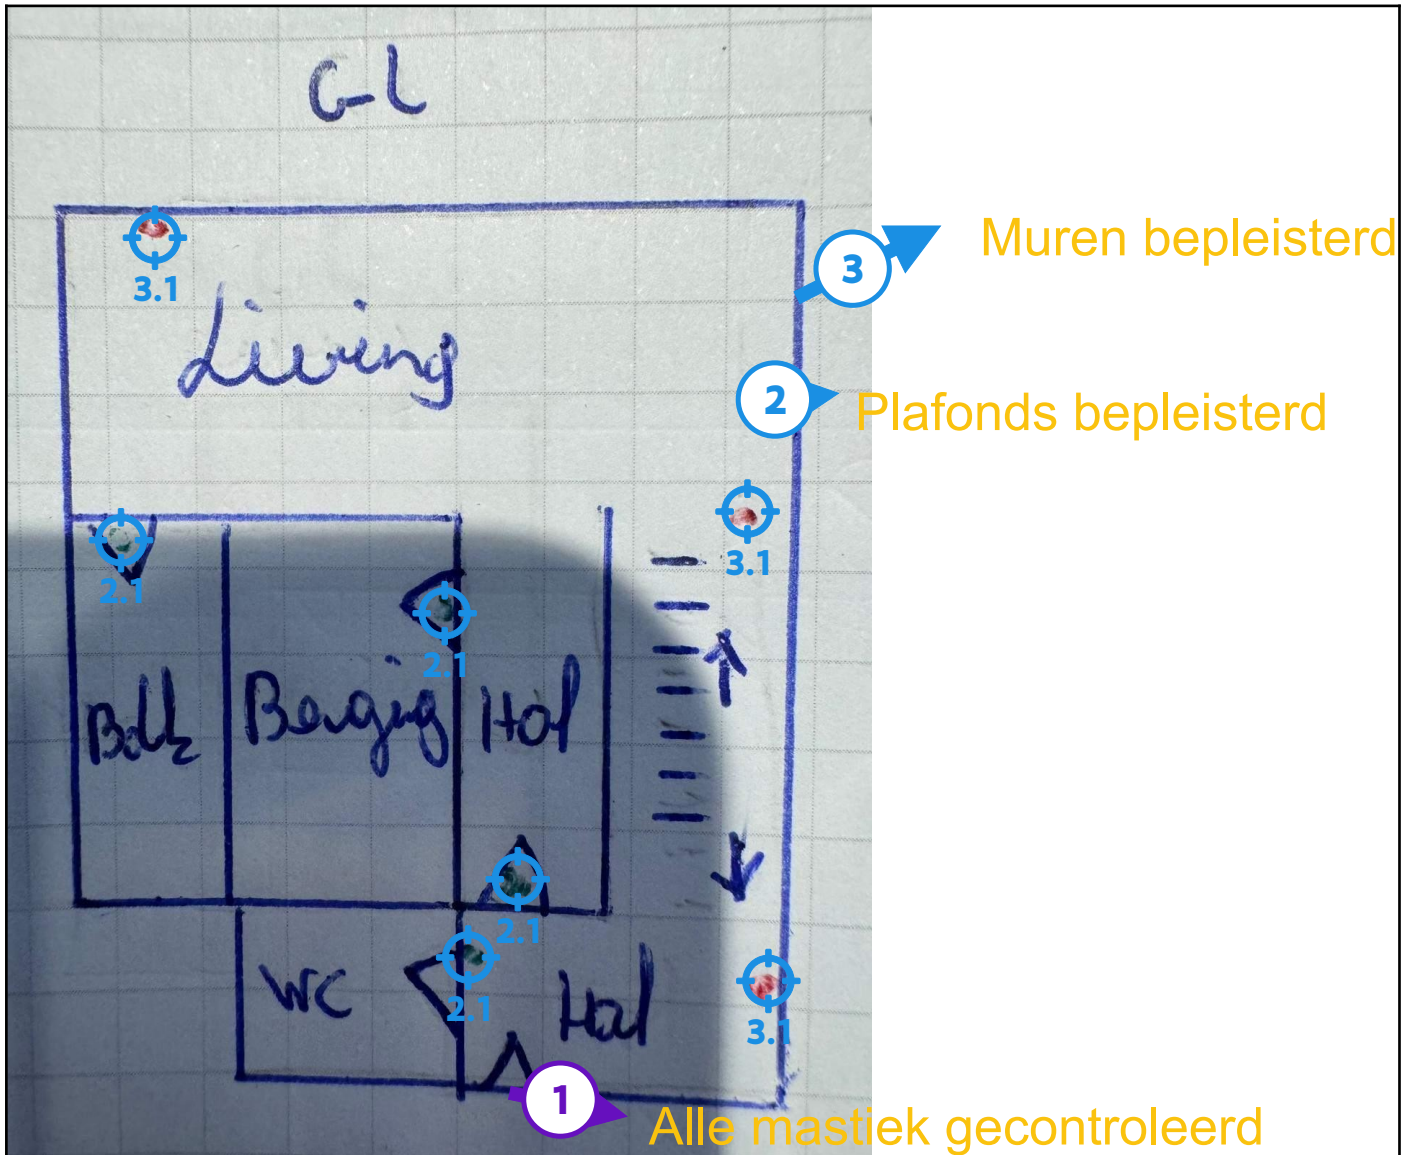 G-L
3.1
3 Muren bepleisterd
Living
2 Plafonds bepleisterd
3.1
2.1
2.1
Berging
Hal
2.1
WC
2.1
Hal
3.1
1 Alle mastiek gecontroleerd